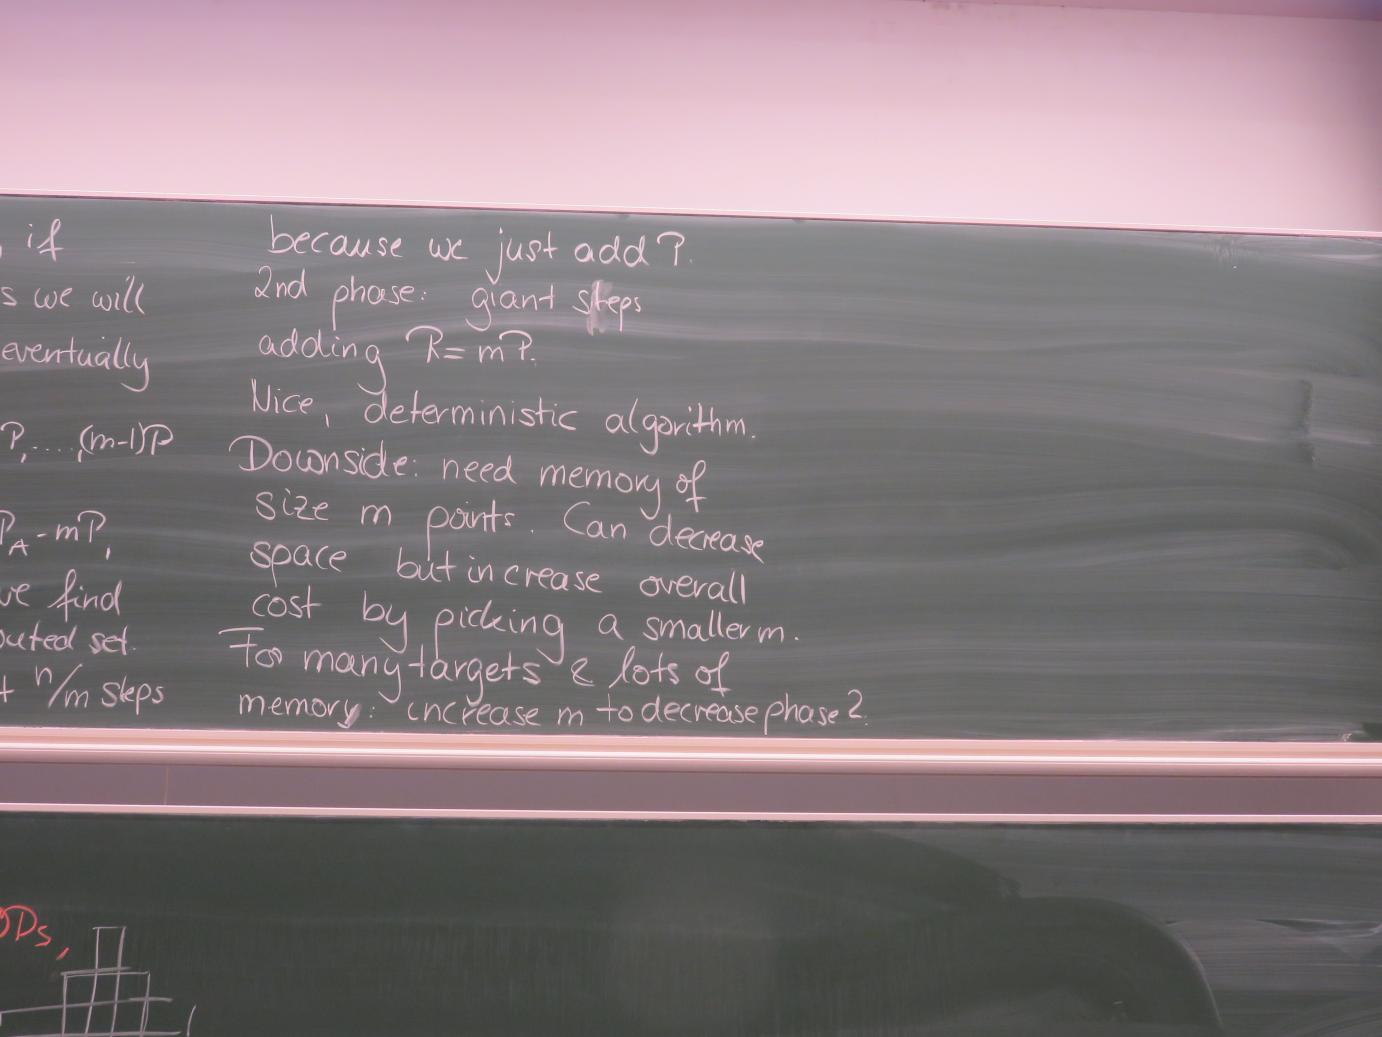 , if
s we will
eventually
P, ..., (m-1)P
P_A - mP,
ve find
outed set.
n/m steps
because we just add P.
2nd phase: giant steps
adding R = mP.
Nice, deterministic algorithm.
Downside: need memory of
size m points. Can decrease
space but increase overall
cost by picking a smaller m.
For many targets & lots of
memory: increase m to decrease phase 2.
DDs,